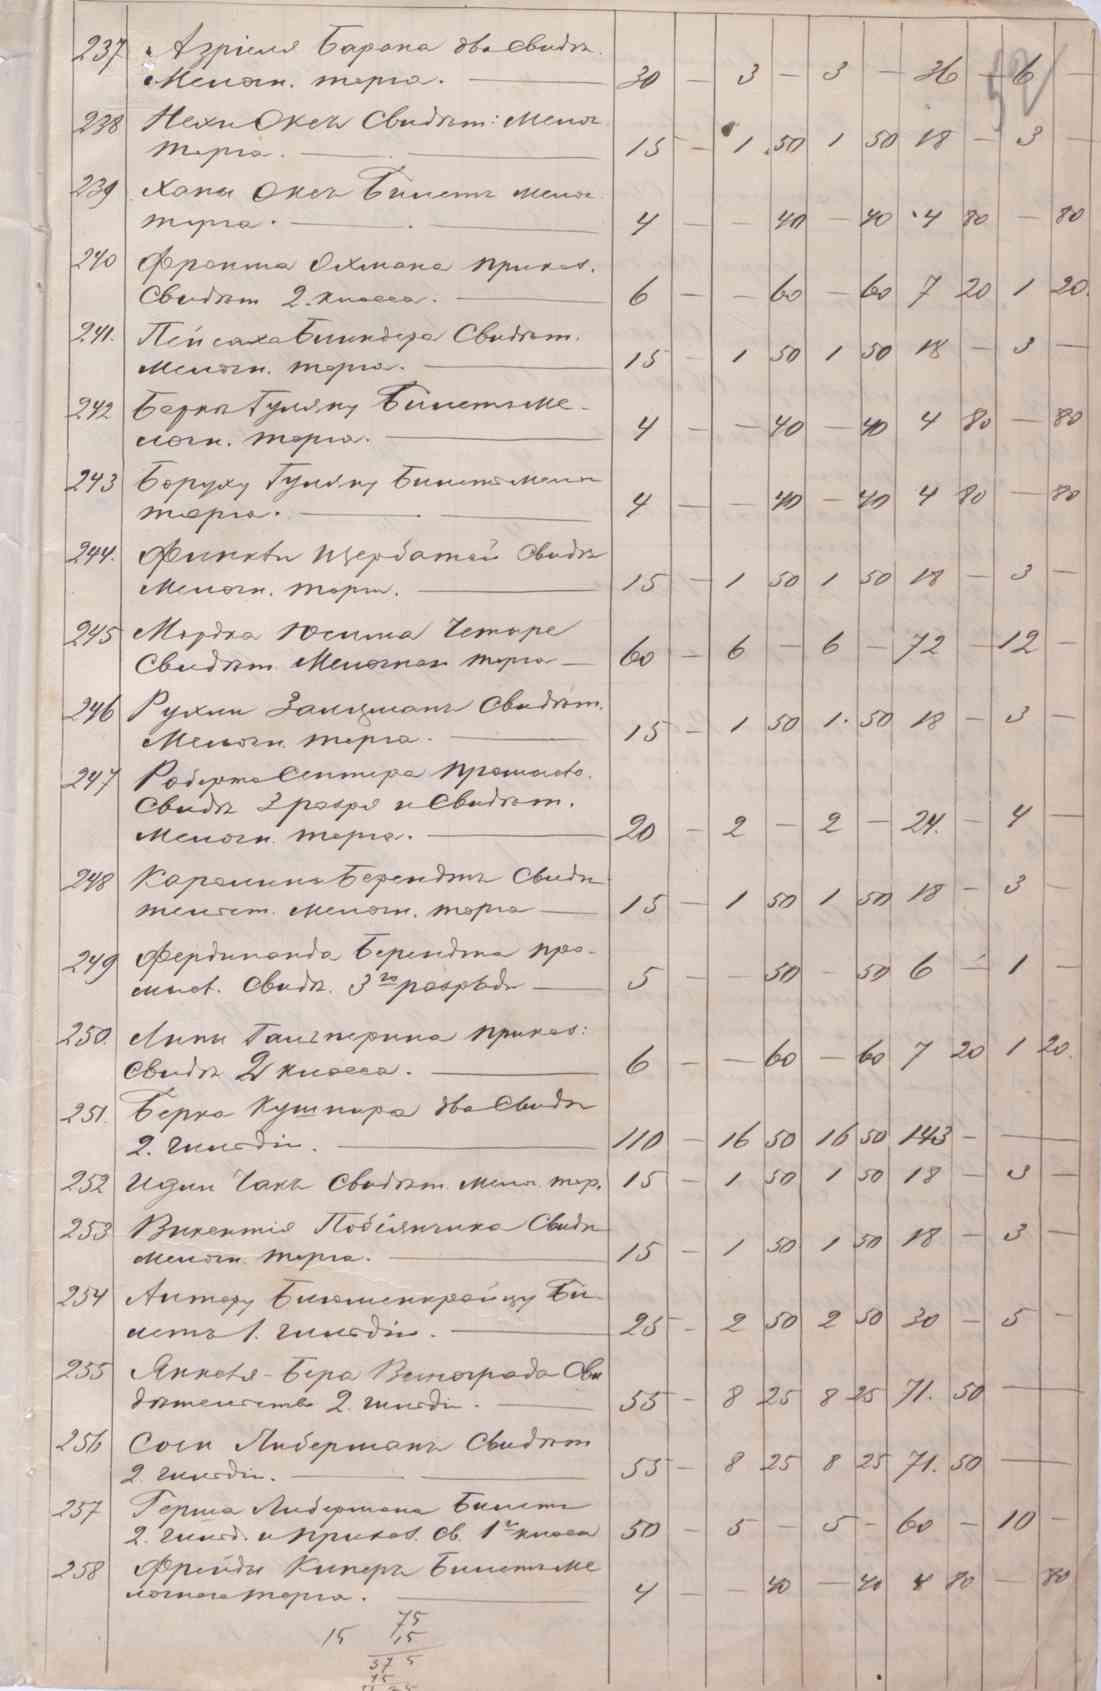 237 Азріеля Барана два Свидѣ.
Мелочн. торга. 30 — 3 — 3 — 36 — 6 —
238 Нехи Оксъ Свидѣт: Мелоч
торга. 15 — 1 50 1 50 18 — 3 —
239 Ханы Оксъ Билетъ мелоч
торга. 4 — — 40 — 40 4 80 — 80
240 Франта Охмана приказ.
Свидѣт 2. класса. 6 — — 60 — 60 7 20 1 20.
241. Пейсаха Блиндера Свидѣт.
Мелочн. торга. 15 — 1 50 1 50 18 — 3 —
242 Беркъ Гуляку Билетъ ме-
лочн. торга. 4 — — 40 — 40 4 80 — 80
243 Боруху Гуляку Билетъ мелоч
торга. 4 — — 40 — 40 4 80 — 80
244. Щербатой Свидѣ
Мелочн. торга. 15 — 1 50 1 50 18 — 3 —
245 Мордка Юсима Четыре
Свидѣт. Мелочнаго торга 60 — 6 — 6 — 72 — 12 —
246 Рухли Зальцманъ Свидѣт.
Мелочн. торга. 15 — 1 50 1. 50 18 — 3 —
247 Роберта Сентера промысло.
Свидѣ 3 разря и Свидѣт.
Мелочн. торга. 20 — 2 — 2 — 24. — 4 —
248 Каролины Берендтъ Свидѣ
тельст. мелочн. торга 15 — 1 50 1 50 18 — 3 —
249 Фердинанда Берендта про-
мысл. Свидѣ. 3го разряда 5 — — 50 — 50 6 — 1 —
250. Липы Гальперина приказ:
Свидѣ 2 класса. 6 — — 60 — 60 7 20 1 20.
251. Берка Кушнира два Свидѣ
2. гильдіи. 110 — 16 50 16 50 143 — —
252 Идии Чакъ Свидѣт. мелоч. тор. 15 — 1 50 1 50 18 — 3 —
253 Викентія Свидѣ
Мелочн. торга. 15 — 1 50 1 50 18 — 3 —
254 Антеру Блюменкранцу Би-
летъ 1. гильдіи. 25 — 2 50 2 50 30 — 5 —
255 Янкеля-Бера Винограда Сви
дѣтельство 2. гильдіи. 55 — 8 25 8 25 71. 50 —
256 Соси Либерманъ Свидѣт
2. гильдіи. 55 — 8 25 8 25 71. 50 —
257 Герша Либермана Билетъ
2. гильд. и приказ. св. 1го класса 50 — 5 — 5 — 60 — 10 —
258 Фрейды Киперъ Билетъ ме
лочнаго торга. 4 — — 40 — 40 4 80 — 80
75
15 15
375
75